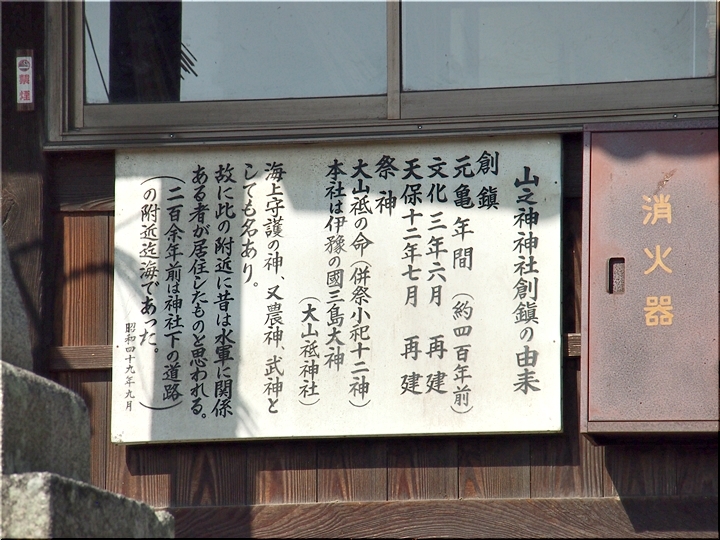 山之神神社創鎮の由来
創鎮
元亀年間(約四百年前)
文化三年六月 再建
天保十二年七月 再建
祭神
大山祗の命(併祭小祀十二神)
本社は伊豫の國三島大神
(大山祗神社)
海上守護の神、又農神、武神と
しても名あり。
故に此の附近に昔は水軍に関係
ある者が居住したものと思われる。
(二百余年前は神社下の道路
の附近迄海であった。)
昭和四十九年九月
消火器
禁煙